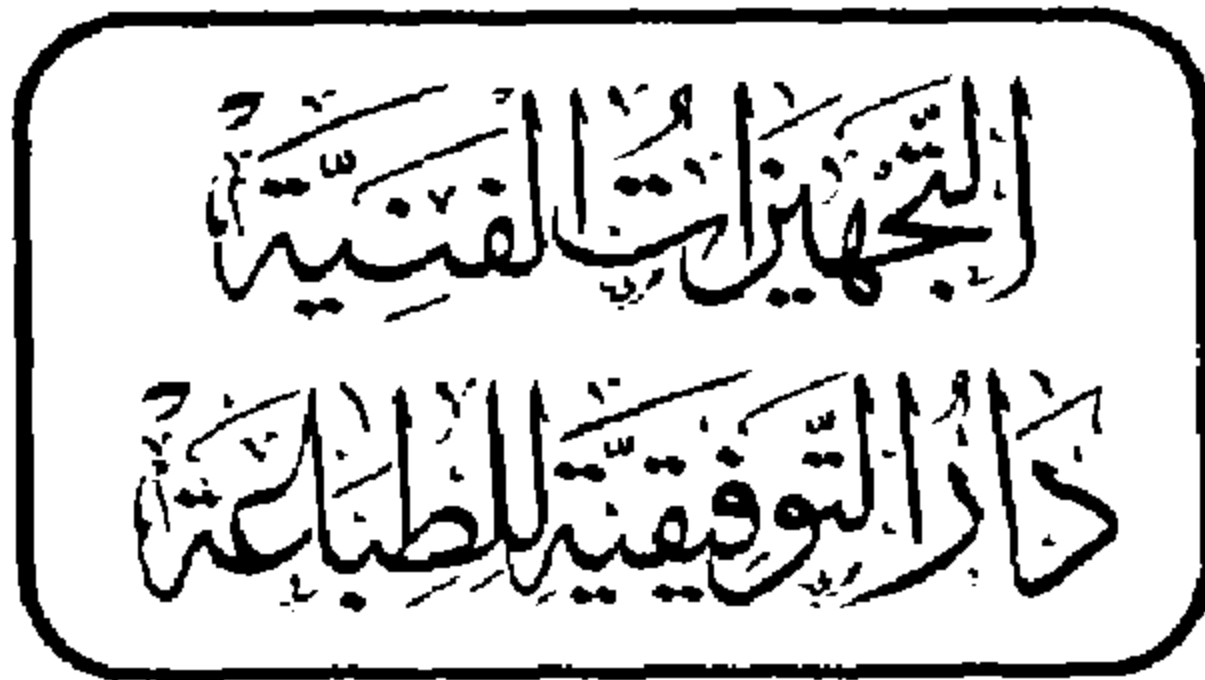 التَّجْهِيزَاتُ الفَنِيَّة
دَارُ التَّوفِيقيَّة لِلطِبَاعَة